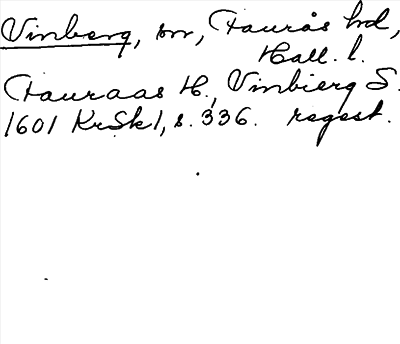 Vinberg, sn, Faurås hd,
Hall. l.
Fauraas H., Vinbierg S.
1601 KrSk 1, s. 336. regest.